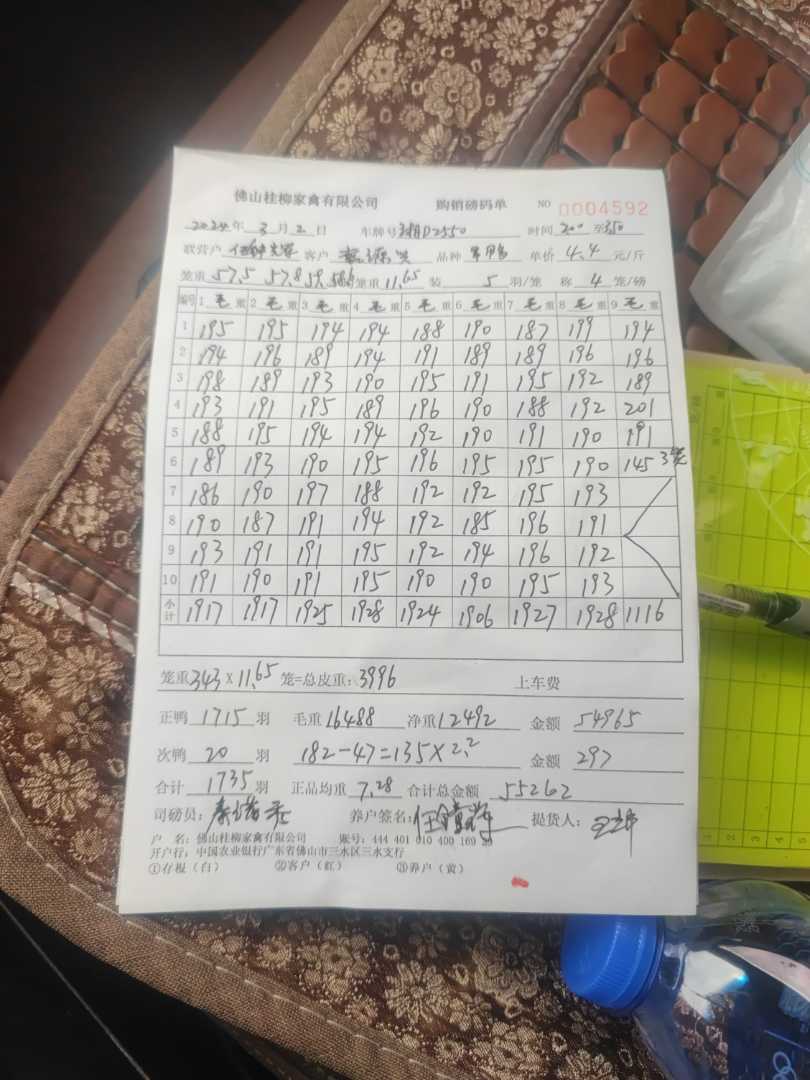 佛山桂柳家禽有限公司 购销磅码单 NO 0004592
2024年 3月 2日 车牌号 D2550 时间 200 至 350
联营户 客户 品种 单价 4.4 元/斤
笼重 57.5 57.8 59. 58.6 笼重 11.65 装 5 羽/笼 称 4 笼/磅
编号 1 毛重 2 毛重 3 毛重 4 毛重 5 毛重 6 毛重 7 毛重 8 毛重 9 毛重
1 195 195 194 194 188 190 187 199 194
2 194 196 189 194 191 189 189 196 196
3 198 189 193 190 195 191 195 192 189
4 193 191 195 189 196 190 188 192 201
5 188 195 194 194 192 190 191 190 191
6 189 193 190 195 196 195 195 190 145 3笼
7 186 190 197 188 192 192 195 193
8 190 187 191 194 192 185 196 191
9 193 191 191 195 192 194 196 192
10 191 190 191 195 190 190 195 193
小计 1917 1917 1925 1928 1924 1906 1927 1928 1116
笼重 343 x 11.65 笼=总皮重: 3996 上车费
正鸭 1715 羽 毛重 16488 净重 12492 金额 54965
次鸭 20 羽 182-47=135x2.2 金额 297
合计 1735 羽 正品均重 7.28 合计总金额 55262
司磅员: 养户签名: 提货人:
户 名: 佛山桂柳家禽有限公司 账号: 444 401 010 400 169 29
开户行: 中国农业银行广东省佛山市三水区三水支行
①存根(白) ②客户(红) ③养户(黄)